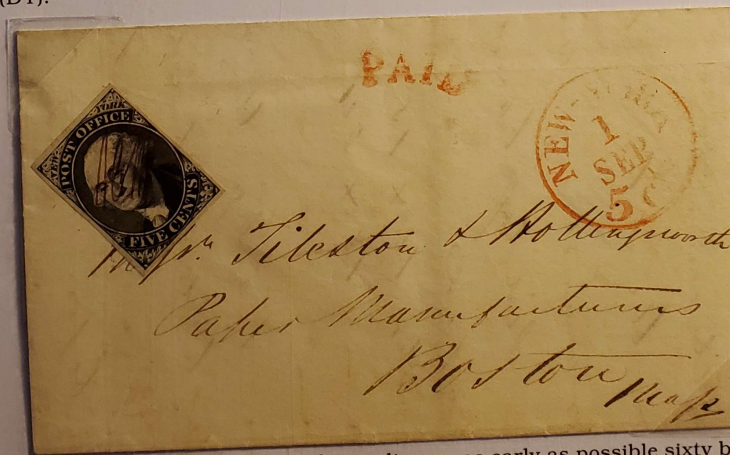 (D1).
PAID
NEW-YORK
1
SEP
5 C
NEW YORK
POST OFFICE
FIVE CENTS
Messrs. Tileston & Hollingsworth
Paper Manufacturers
Boston
Mass
early as possible sixty b